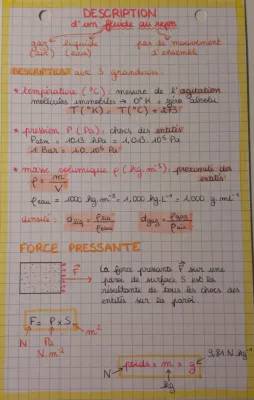 DESCRIPTION
d'un fluide au repos
gaz liquide pas de mouvement
(air) (eau) d'ensemble
DESCRIPTION avec 3 grandeurs :
* température (°C) : mesure de l'agitation
molécules immobiles → 0°K = zéro absolu
T(°K) = T(°C) + 273
* pression P (Pa) : chocs des entités
Patm = 1013 hPa = 1,013.10⁵ Pa
1 Bar = 1,0.10⁵ Pa
* masse volumique ρ (kg.m⁻³) : proximité des
entités
ρ = m/V
ρeau = 1000 kg.m⁻³ = 1,000 kg.L⁻¹ = 1,000 g.mL⁻¹
densité : dliq = ρliq/ρeau dgaz = ρgaz/ρair
FORCE PRESSANTE
F⃗
La force pressante F⃗ sur une
paroi de surface S est la
résultante de tous les chocs des
entités sur la paroi.
F = P x S
m²
N Pa
N.m⁻²
9,81 N.kg⁻¹
poids = m x g
N
kg